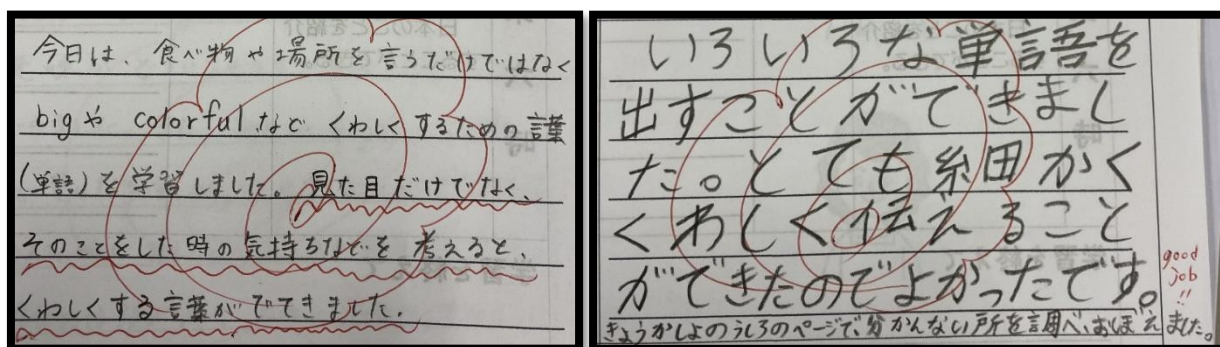 今日は、食べ物や場所を言うだけではなく
bigや colorfulなど くわしくするための言葉
(単語)を学習しました。見た目だけでなく、
そのことをした時の気持ちなどを考えると、
くわしくする言葉がでてきました。
いろいろな単語を
出すことができまし
た。とても細かく
くわしく伝えること
ができたのでよかったです。
good
job
!!
きょうかしょのうしろのページで分かんない所を調べ、おぼえました。